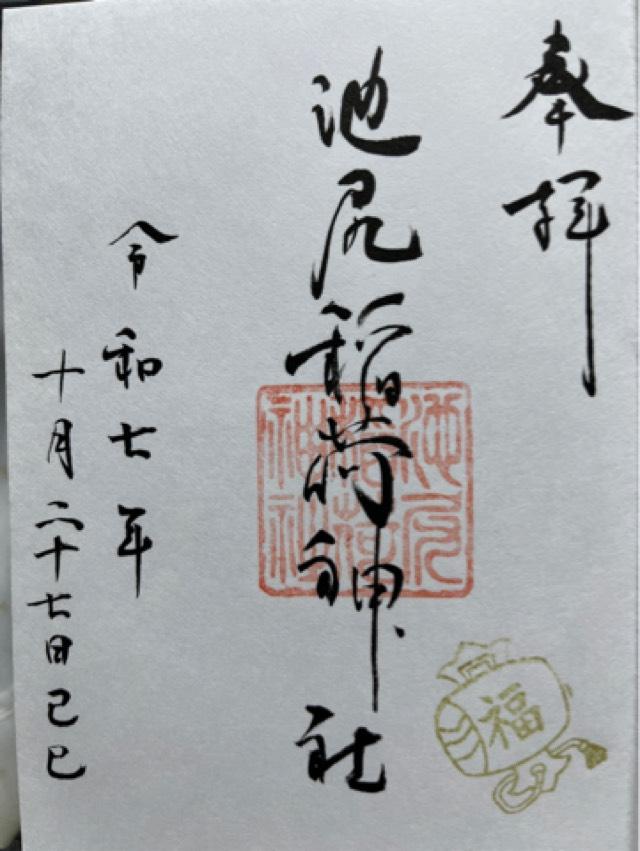 奉拝
池尻稲荷神社
池尻
稲荷
神社
福
令和七年
十月二十七日己巳